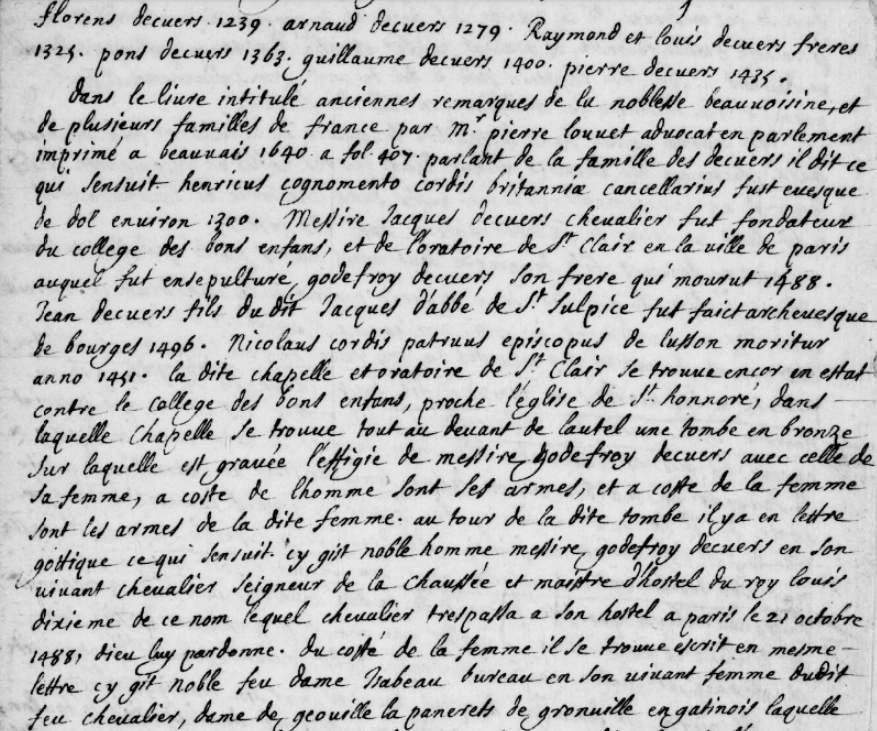 florens decuers 1239. arnaud decuers 1279. Raymond et louis decuers freres
1325. pons decuers 1363. guillaume decuers 1400. pierre decuers 1435.
dans le liure intitulé anciennes remarques de la noblesse beauuoisine, et
de plusieurs familles de france par Mr. pierre louuet aduocat en parlement
imprimé a beauuais 1640. a fol. 407. parlant de la famille des decuers il dit ce
qui sensuit henricus cognomento cordis britanniæ cancellarius fust euesque
de dol enuiron 1300. Messire Jacques decuers cheualier fut fondateur
du college des bons enfans, et de l'oratoire de St. Clair en la uille de paris
auquel fut ensepulturé, godefroy decuers son frere qui mourut 1488.
Jean decuers fils du dit Jacques d'abbé de St. Sulpice fut faict archeuesque
de bourges 1496. Nicolaus cordis patruus episcopus de lusson moritur
anno 1451. la dite chapelle et oratoire de St. Clair se trouue encor en estat
contre le college des bons enfans, proche l'église de St. honnoré, dans
laquelle Chapelle se trouue tout au deuant de lautel une tombe en bronze
sur laquelle est grauée l'effigie de messire, godefroy decuers auec celle de
sa femme, a coste de lhomme sont ses armes, et a coste de la femme
sont les armes de la dite femme. au tour de la dite tombe il y a en lettre
gottique ce qui sensuit. cy gist noble homme messire, godefroy decuers en son
uiuant cheualier seigneur de la chaussée et maistre d'hostel du roy louis
dixieme de ce nom lequel cheualier trespassa a son hostel a paris le 21 octobre
1488, dieu luy pardonne. du costé de la femme il se trouue escrit en mesme
lettre cy git noble feu dame Isabeau bureau en son uiuant femme dudit
feu cheualier, dame de, geouille la panerets de gronuille en gatinois laquelle